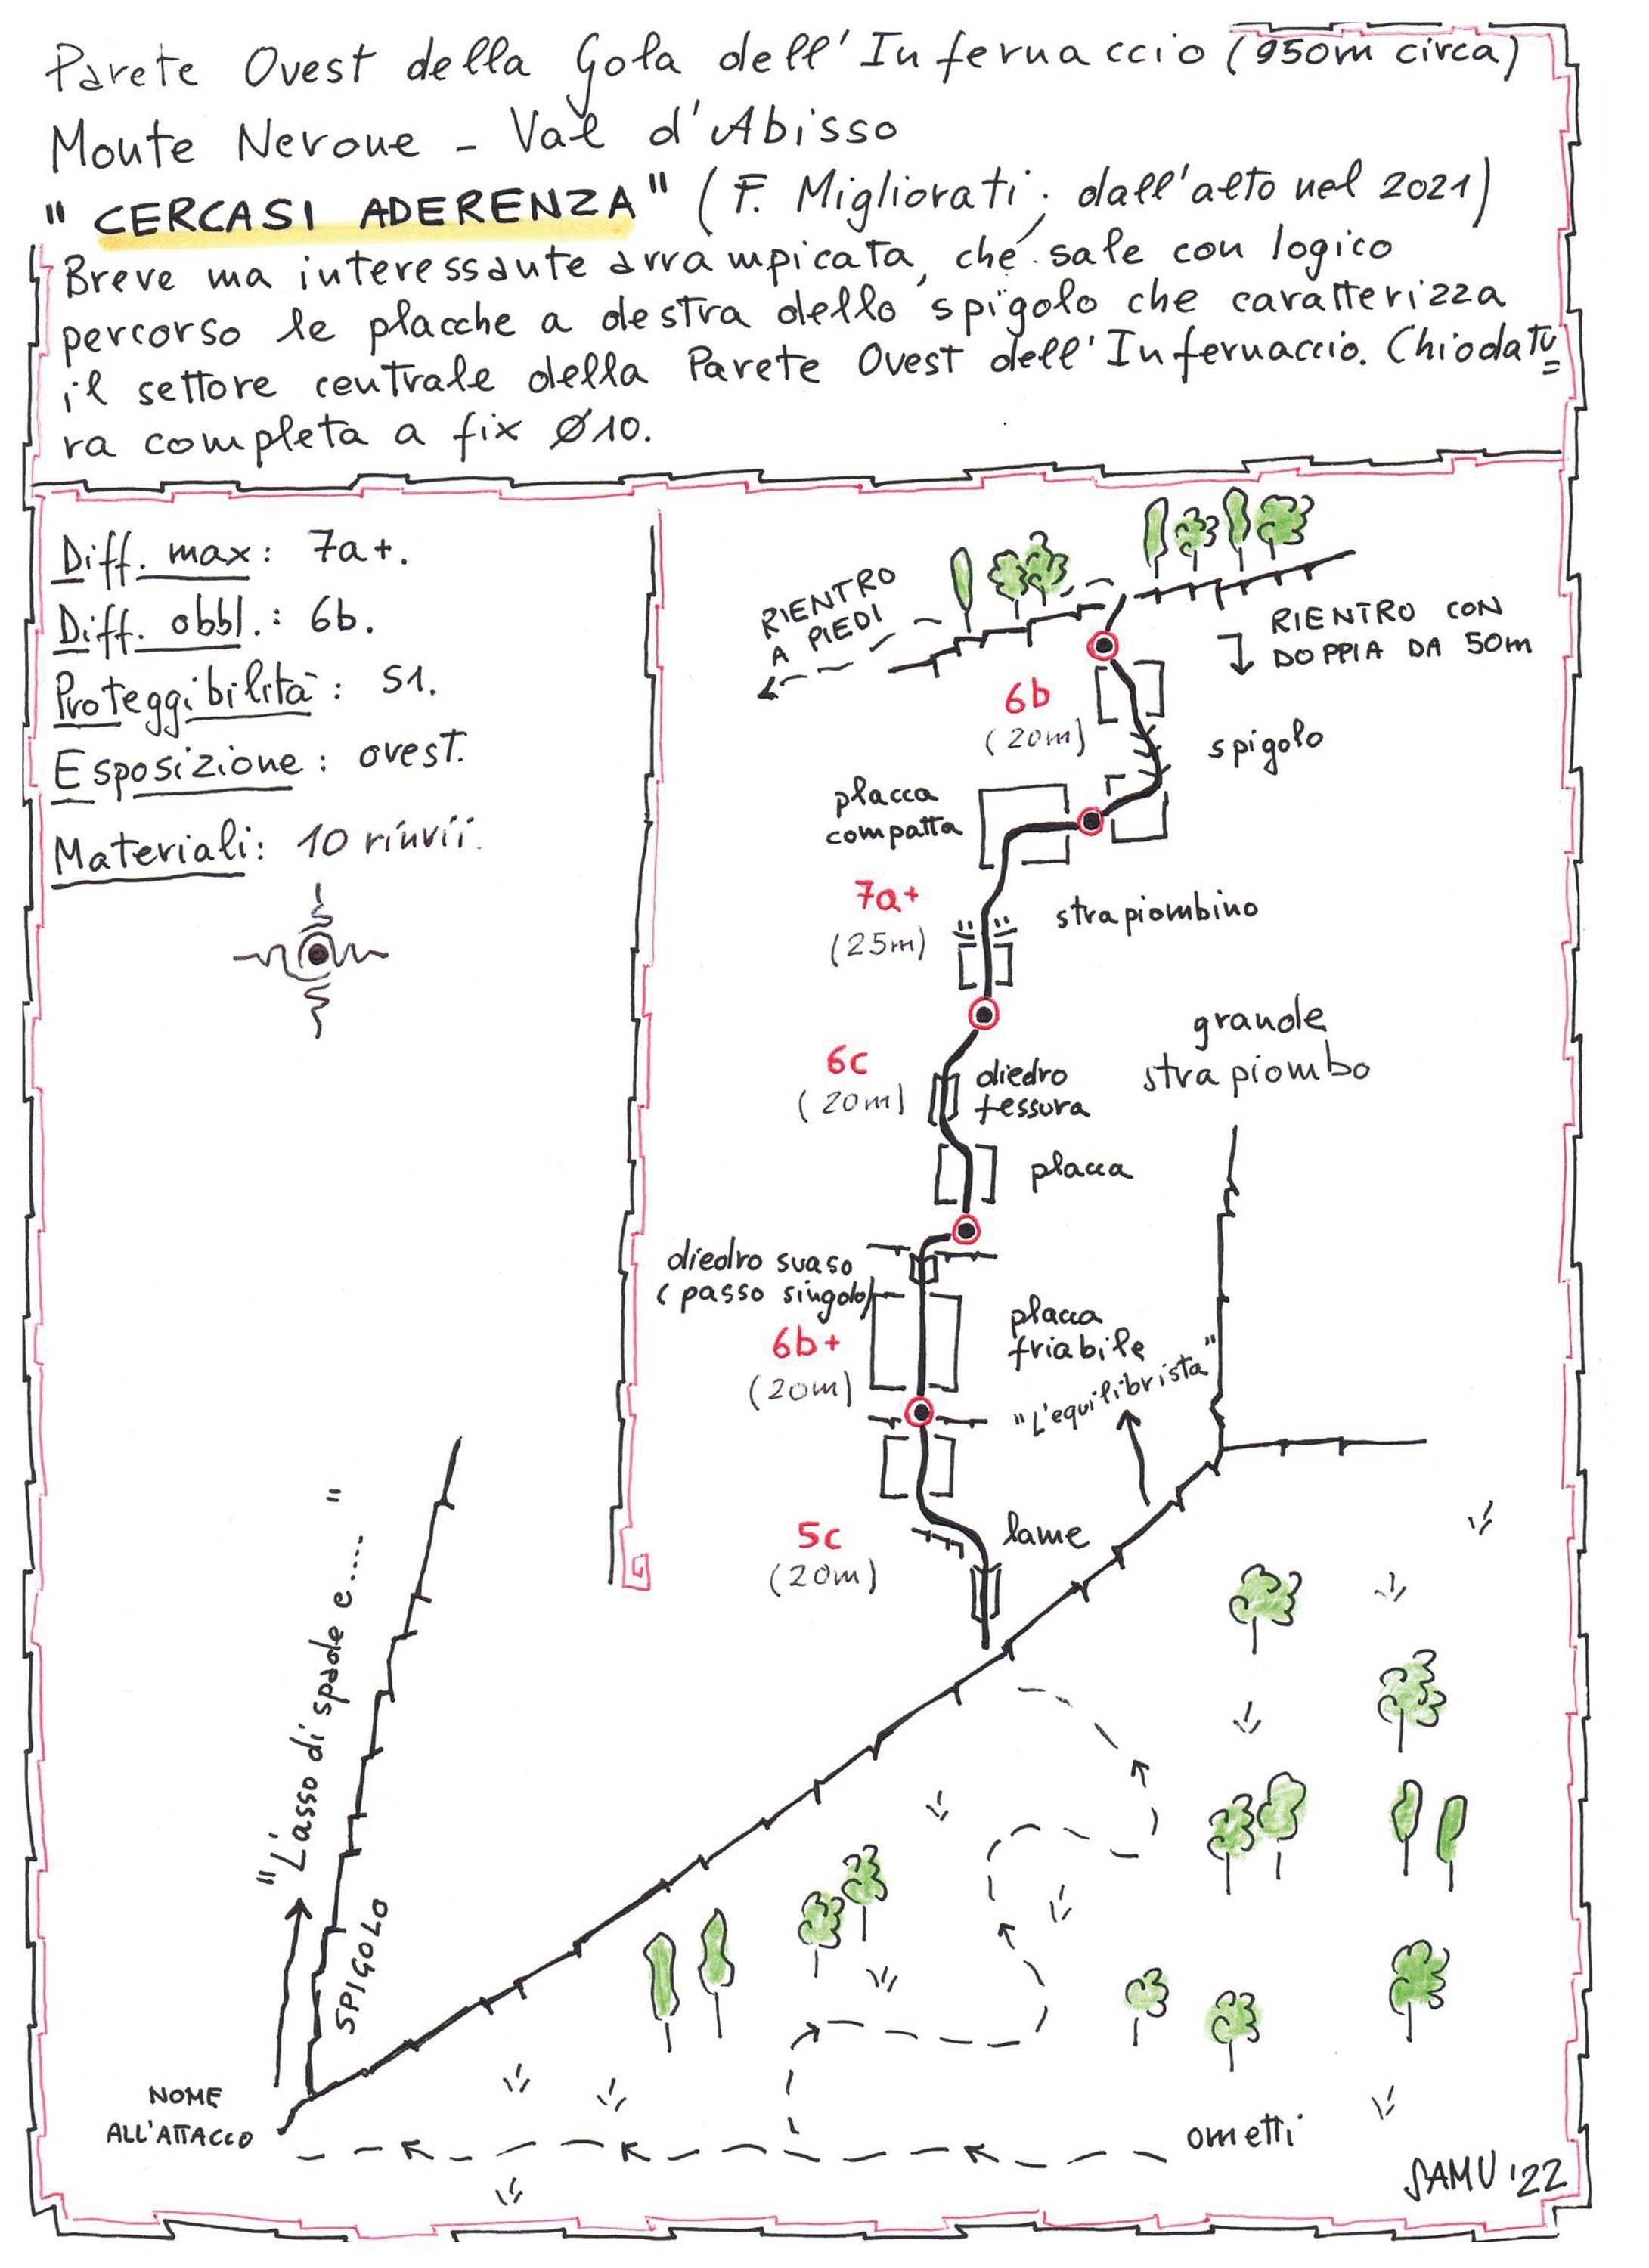 Parete Ovest della Gola dell'Infernaccio (950m circa)
Monte Nerone - Val d'Abisso
"CERCASI ADERENZA" (F. Migliorati; dall'alto nel 2021)
Breve ma interessante arrampicata, che sale con logico
percorso le placche a destra dello spigolo che caratterizza
il settore centrale della Parete Ovest dell'Infernaccio. Chiodatu=
ra completa a fix Ø10.
Diff. max: 7a+.
Diff. obbl.: 6b.
Proteggibilità: S1.
Esposizione: ovest.
Materiali: 10 rinvii.
RIENTRO
A PIEDI
RIENTRO CON
DOPPIA DA 50m
6b
(20m)
spigolo
placca
compatta
7a+
(25m)
strapiombino
grande
strapiombo
6c
(20m)
diedro
fessura
placca
diedro svaso
(passo singolo)
6b+
(20m)
placca
friabile
"L'equilibrista"
5c
(20m)
lame
"L'asso di spade e....."
SPIGOLO
NOME
ALL'ATTACCO
ometti
SAMU '22